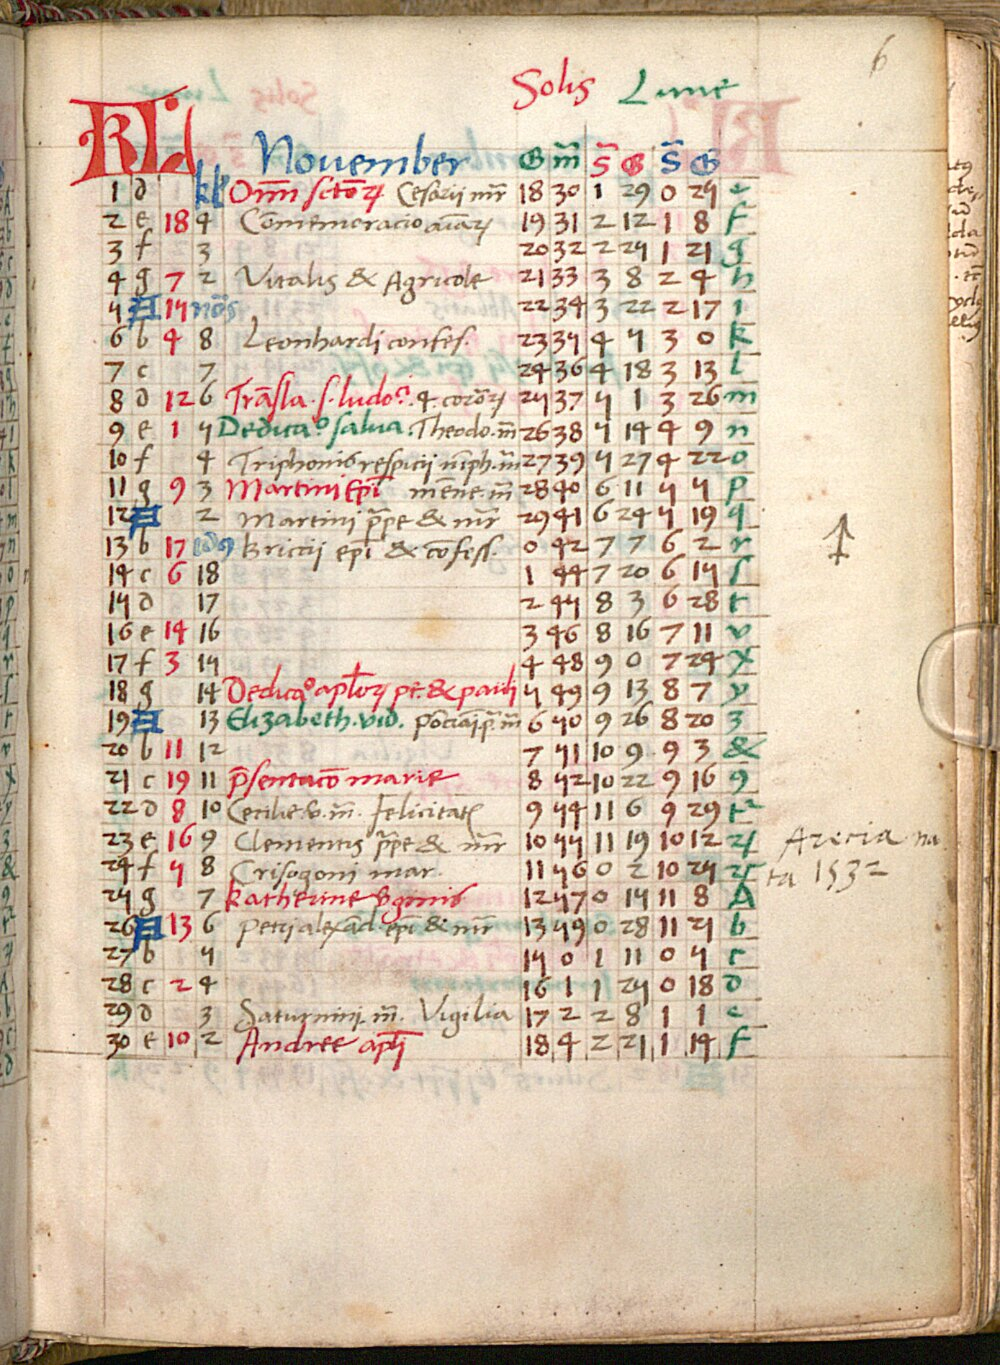 6
Solis Lune
KL
November G m̄ S̄ G S̄ G
1 d kł Om̄ sctōꝝ Cesarij mr̄ 18 30 1 29 0 25 e
2 e 18 4 Cōmemoracio aīaꝝ 19 31 2 12 1 8 f
3 f 3 20 32 2 25 1 21 g
4 g 7 2 Vitalis & Agricole 21 33 3 8 2 4 h
5 A 15 nōs 22 34 3 22 2 17 i
6 b 4 8 Leonhardi confes. 23 35 4 5 3 0 k
7 c 7 24 36 4 18 3 13 l
8 d 12 6 Trāsla. s. ludoͦ. 4. coroāꝝ 25 37 5 1 3 26 m
9 e 1 5 Dedicaͦ salua. Theodo. m̄ 26 38 5 14 4 9 n
10 f 4 Triphonis respicij nīph. m̄ 27 39 5 27 4 22 o
11 g 9 3 Martini Ep̄i mēne. m̄ 28 40 6 11 5 5 p
12 A 2 Martini p̄pe & mr̄ 29 41 6 24 5 19 q
13 b 17 idꝰ Briccij ep̄i & cōfess. 0 42 7 7 6 2 r
14 c 6 18 1 44 7 20 6 15 s
15 d 17 2 45 8 3 6 28 t
16 e 14 16 3 46 8 16 7 11 v
17 f 3 15 4 48 9 0 7 24 x
18 g 14 Dedicaͦ apl̄oꝝ pe. & pauli 5 49 9 13 8 7 y
19 A 13 Elizabeth. vid. pōciāi p̄. m̄ 6 50 9 26 8 20 z
20 b 11 12 7 51 10 9 9 3 &
21 c 19 11 p̄sentacō marie 8 52 10 22 9 16 9
22 d 8 10 Cecilie v. m̄. felicitatꝭ 9 54 11 6 9 29 t
23 e 16 9 Clementis p̄pe & mr̄ 10 55 11 19 10 12 ꝝ
Arecia na
24 f 5 8 Crisogoni mar. 11 56 0 2 10 25
ta 1532
25 g 7 Katherine v̄ginis 12 57 0 15 11 8 A
26 A 13 6 Petri alexād. ep̄i & mr̄ 13 59 0 28 11 21 b
27 b 5 15 0 1 11 0 5 c
28 c 2 4 16 1 1 25 0 18 d
29 d 3 Saturnini. m̄. Vigilia 17 2 2 8 1 1 e
30 e 10 2 Andree apl̄i 18 4 2 21 1 14 f